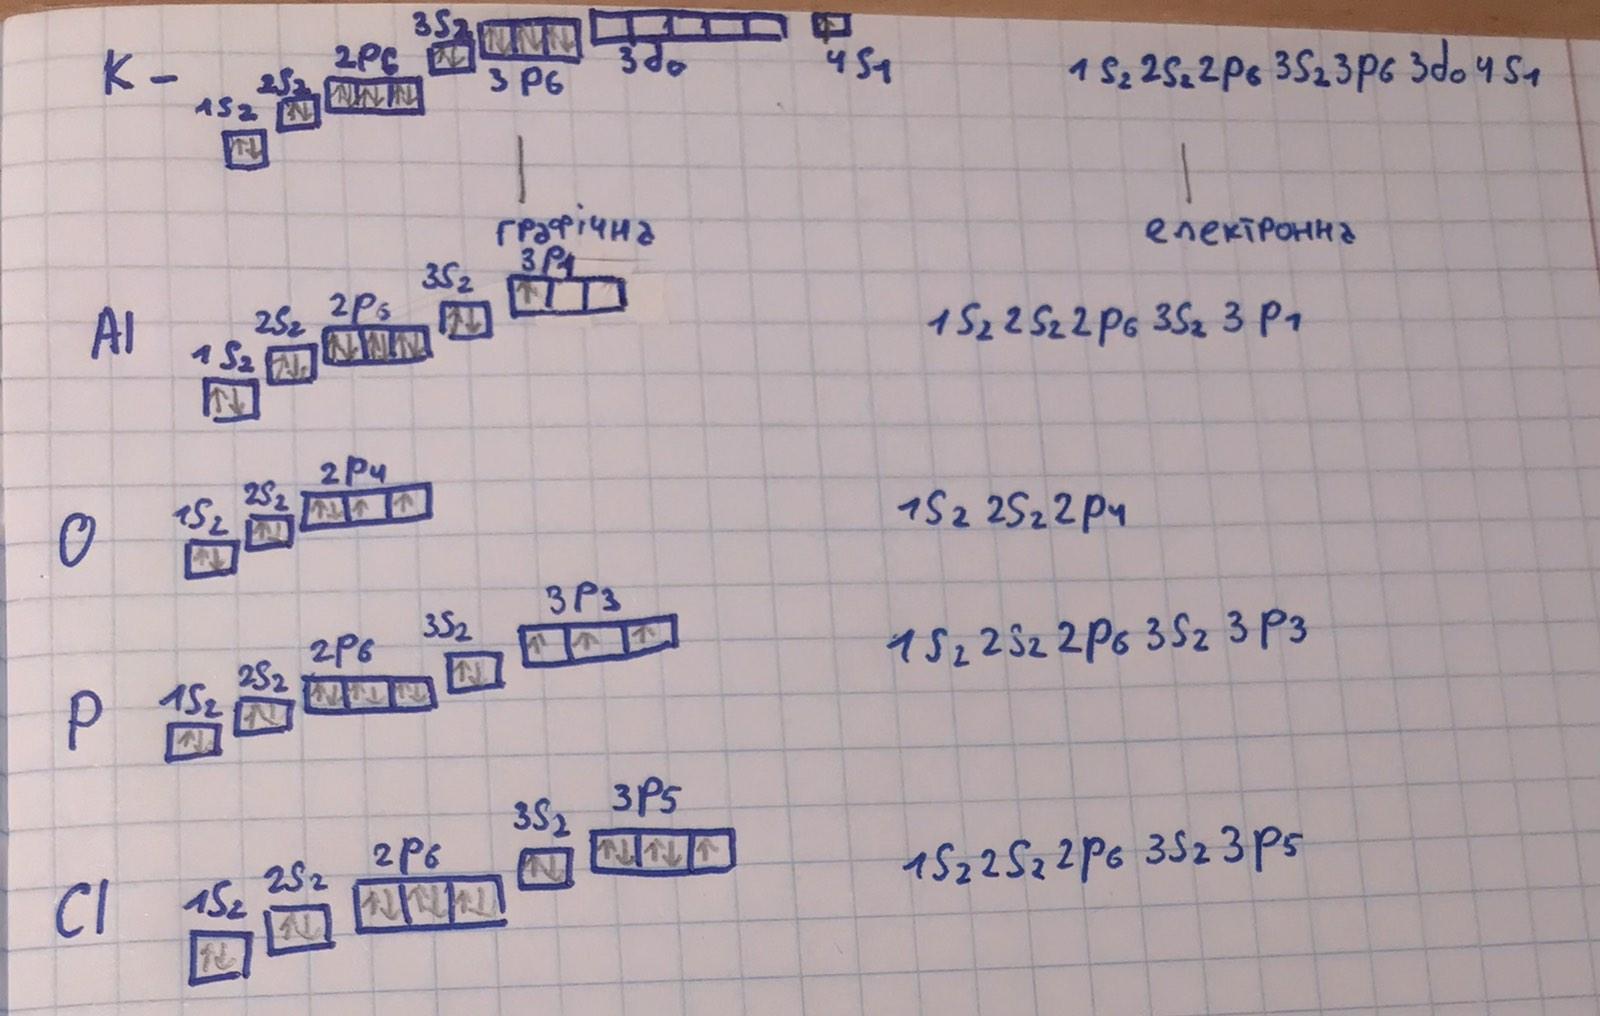 K - 1s2 2s2 2p6 3s2 3p6 3d0 4s1 1s2 2s2 2p6 3s2 3p6 3d0 4s1
графічна електронна
Al 1s2 2s2 2p6 3s2 3p1 1s2 2s2 2p6 3s2 3p1
O 1s2 2s2 2p4 1s2 2s2 2p4
P 1s2 2s2 2p6 3s2 3p3 1s2 2s2 2p6 3s2 3p3
Cl 1s2 2s2 2p6 3s2 3p5 1s2 2s2 2p6 3s2 3p5